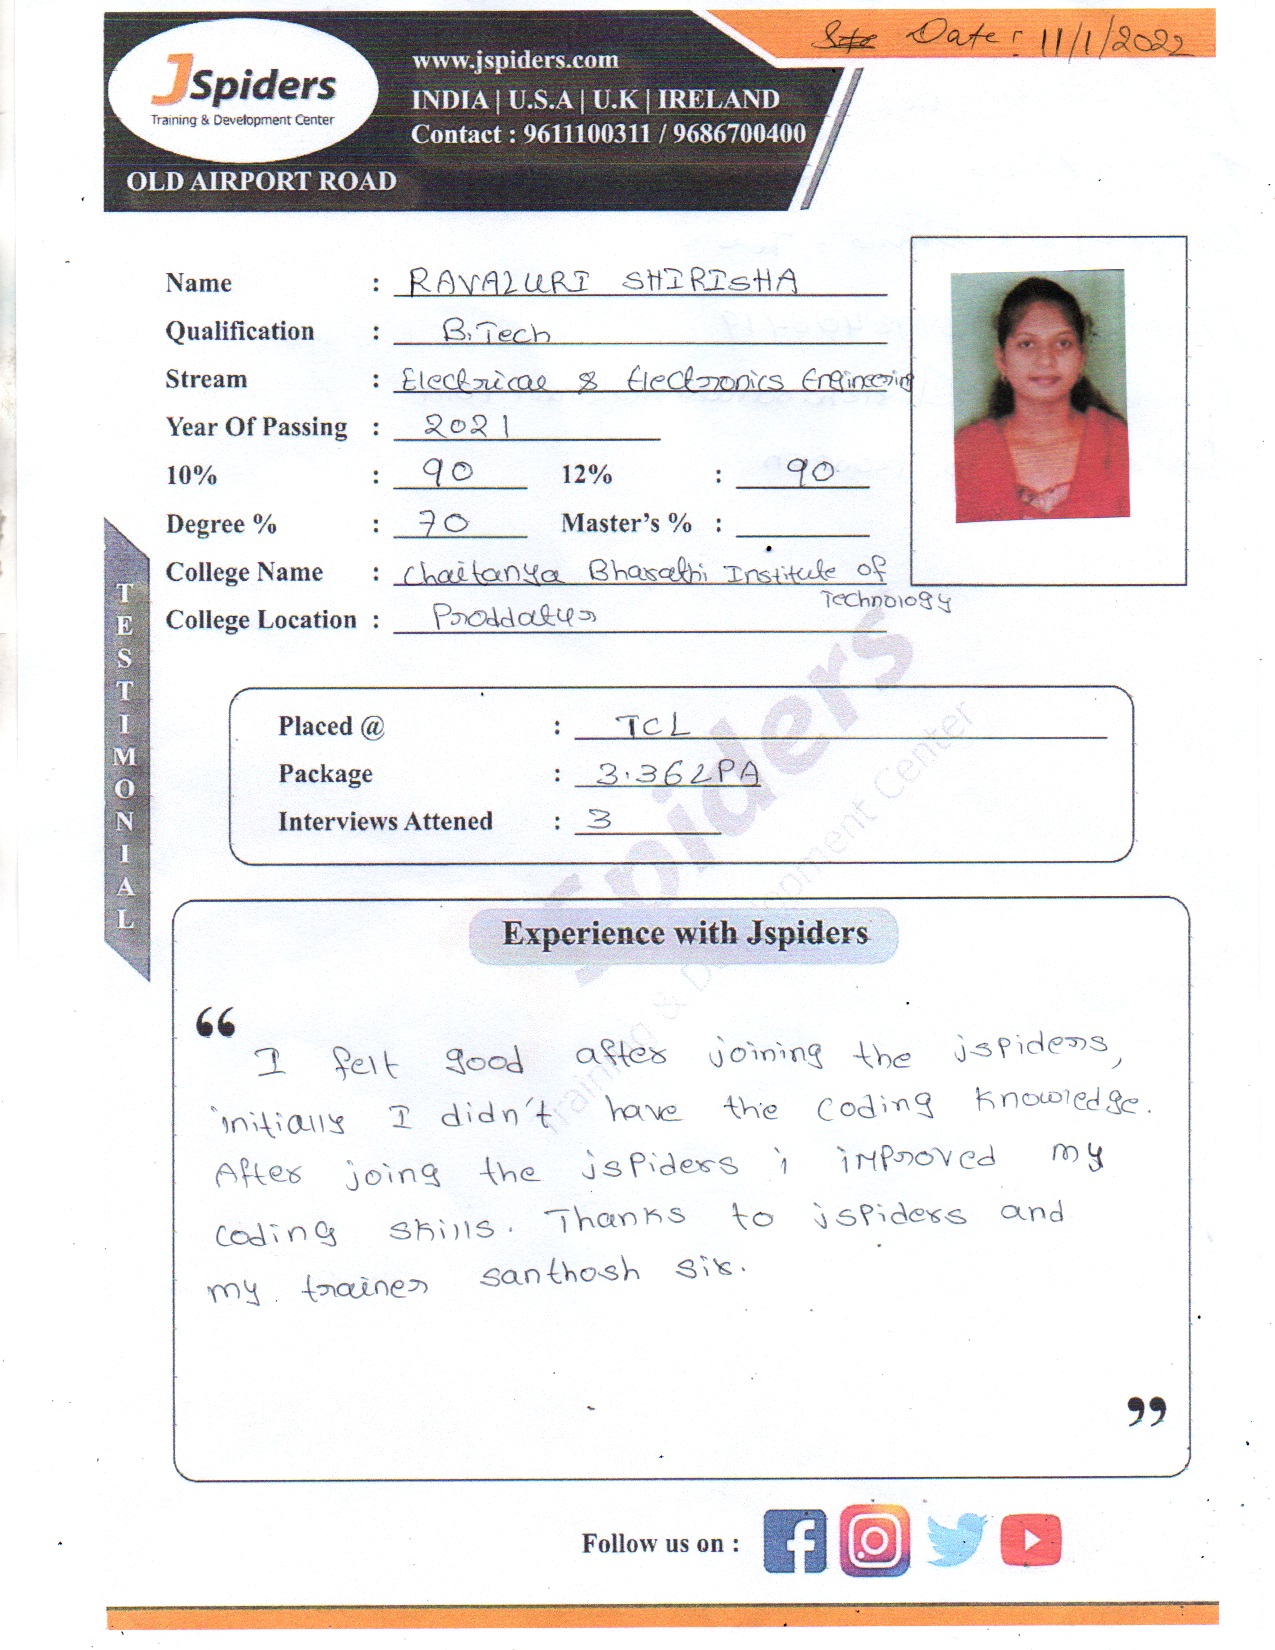 Date : 11/1/2022
JSpiders
Training & Development Center
OLD AIRPORT ROAD
www.jspiders.com
INDIA | U.S.A | U.K | IRELAND
Contact : 9611100311 / 9686700400
Name : RAVALURI SHIRISHA
Qualification : B.Tech
Stream : Electrical & Electronics Engineering
Year Of Passing : 2021
10% : 90 12% : 90
Degree % : 70 Master's % :
College Name : Chaitanya Bharathi Institute of
Technology
College Location : Proddatur
TESTIMONIAL
Placed @ : TCL
Package : 3.36LPA
Interviews Attened : 3
Spiders
Training & Development Center
Experience with Jspiders
“
I felt good after joining the jspiders,
initially I didn't have the coding knowledge.
After joing the jspiders i improved my
coding skills. Thanks to jspiders and
my trainer santhosh sir.
”
Follow us on :